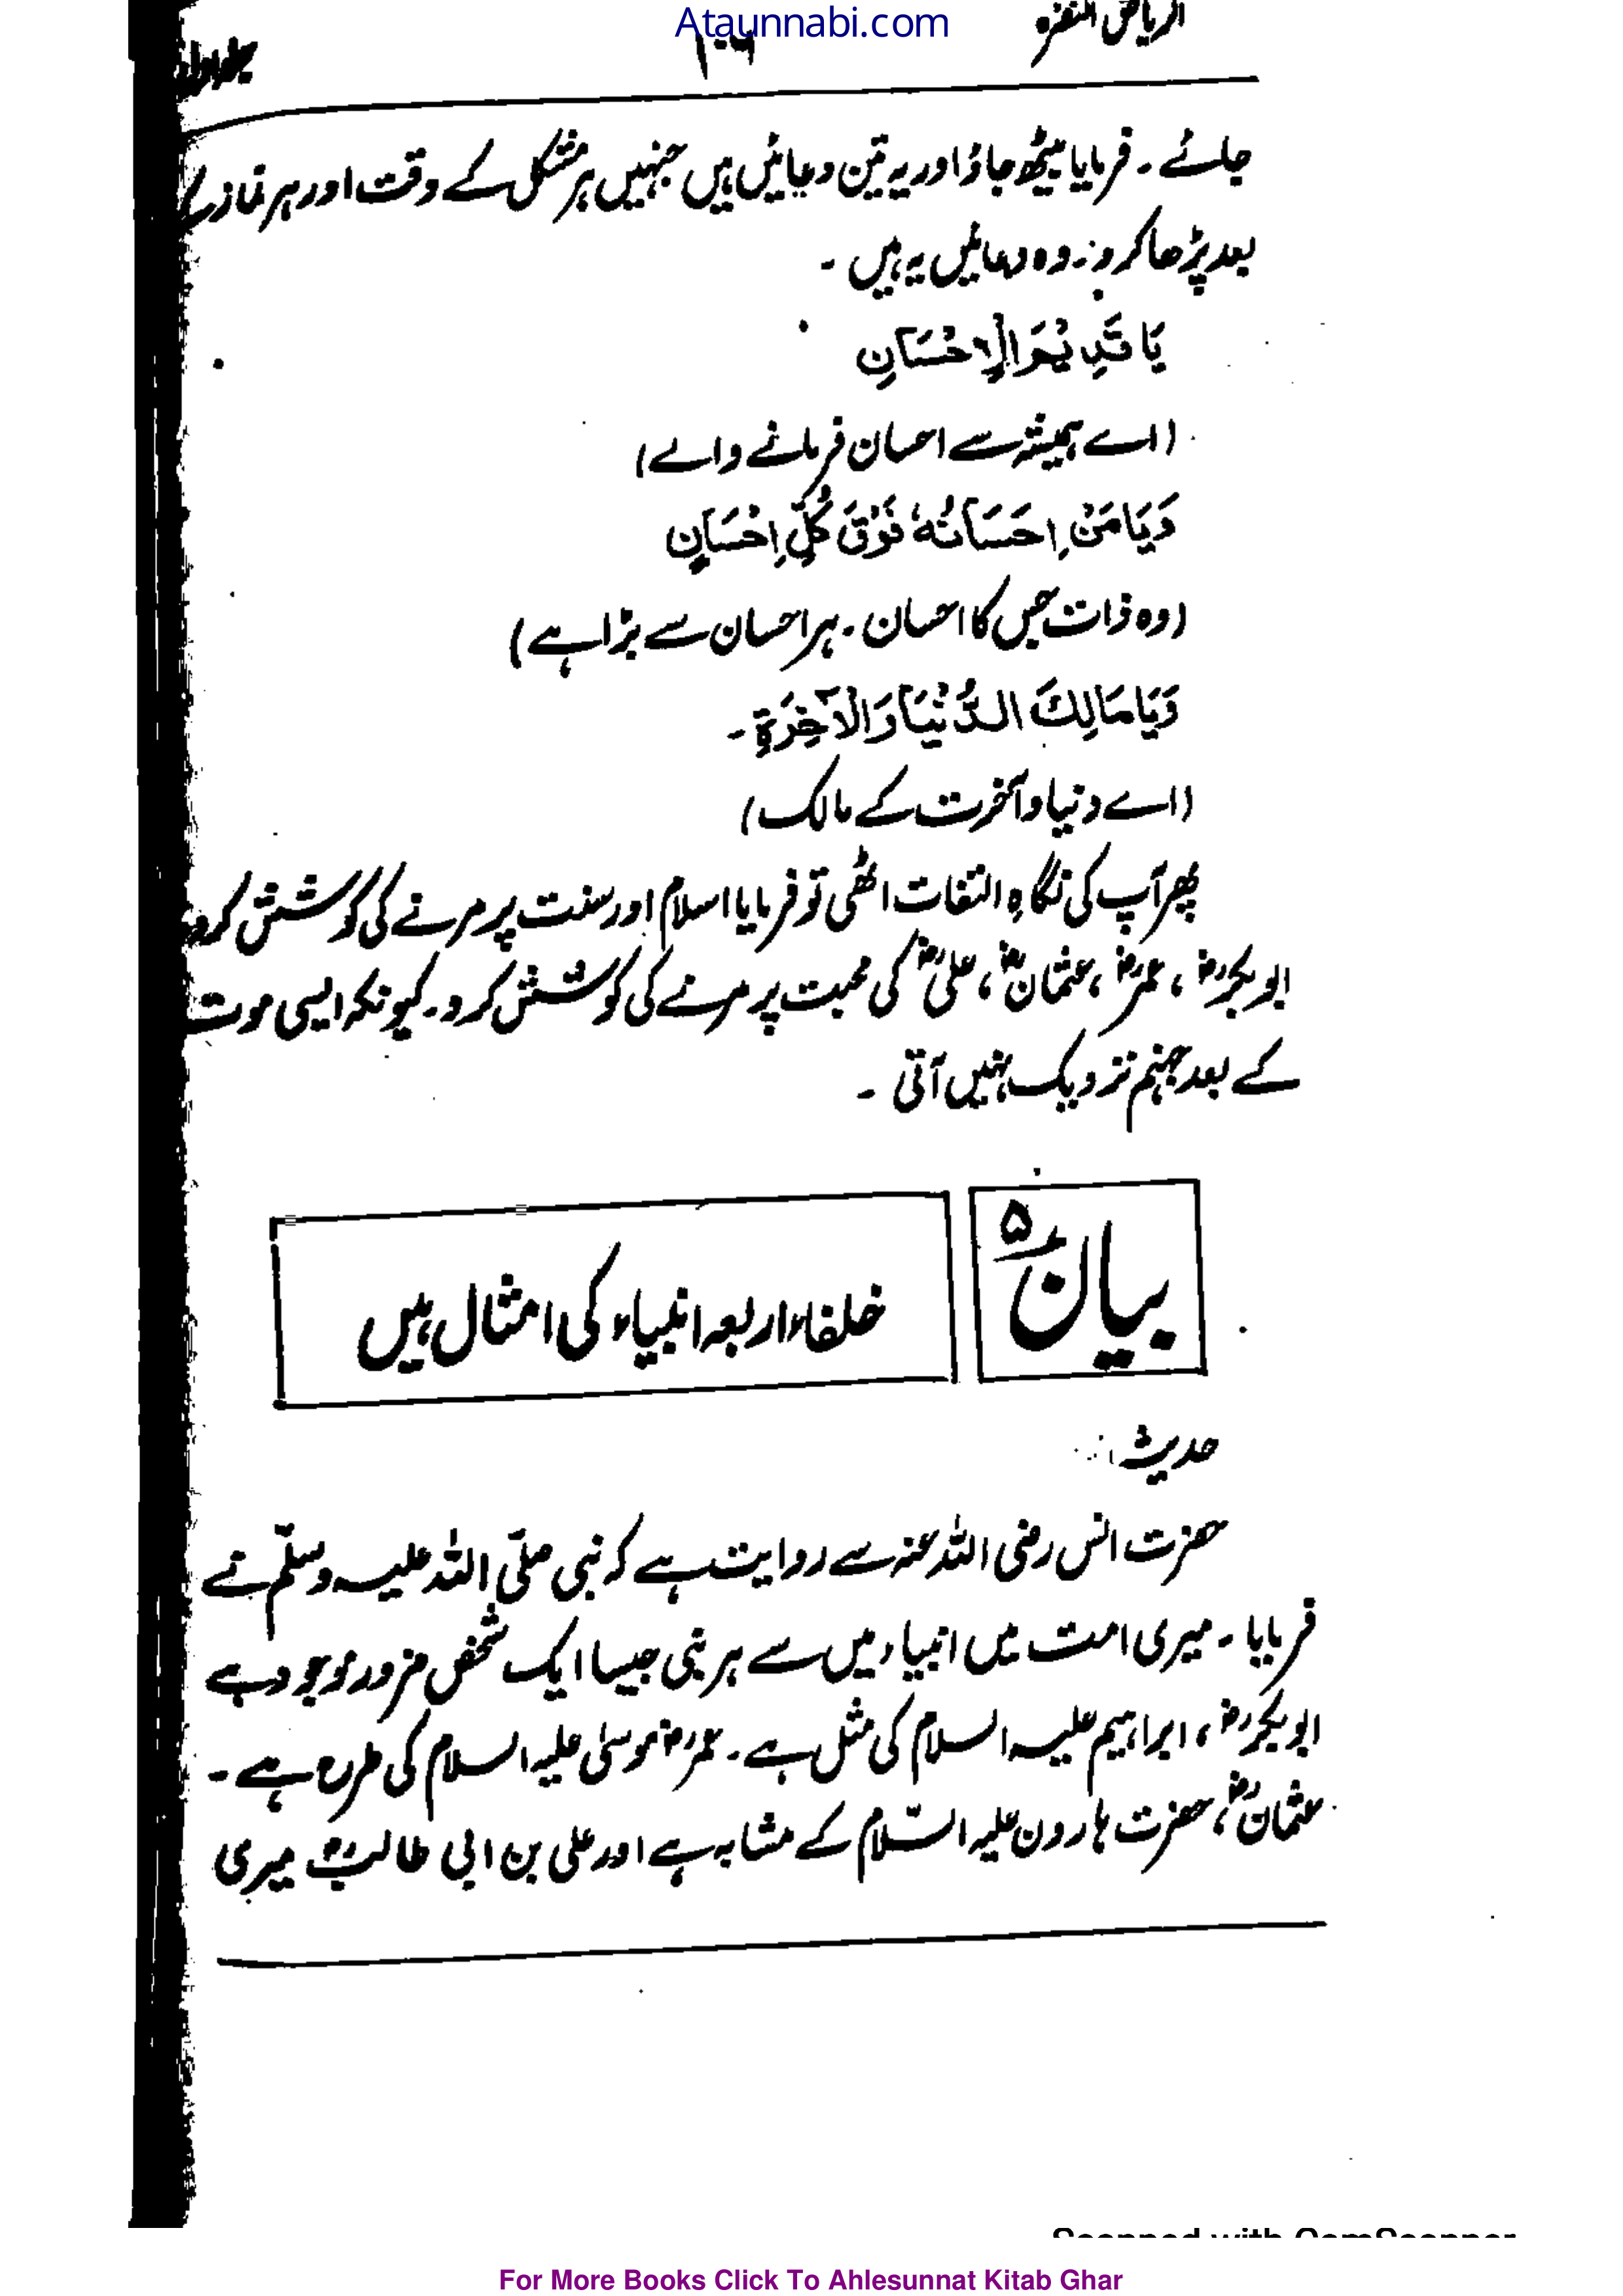 Ataunnabi.com
الریاض النضرہ
۱۰۶
جلد اول
جائے ۔ فرمایا بیٹھ جاؤ اور یہ تین دعائیں ہیں جنہیں ہر مشکل کے وقت اور ہر نماز کے
بعد پڑھا کرو ۔ وہ دعائیں یہ ہیں ۔
يَا قَدِيْمَ الْاِحْسَانِ
(اے ہمیشہ سے احسان فرمانے والے)
وَيَا مَنْ اِحَسَانُهٗ فَوْقَ كُلِّ اِحْسَانٍ
(وہ ذات جس کا احسان ۔ ہر احسان سے بڑا ہے)
وَيَا مَالِكَ الدُّنْيَا وَالْآخِرَةِ ۔
(اے دنیا و آخرت کے مالک)
پھر آپ کی نگاہِ التفات اٹھی تو فرمایا اسلام اور سنت پر مرنے کی کوشش کرو
ابو بکرؓ ، عمرؓ ، عثمانؓ ، علیؓ کی محبت پر مرنے کی کوشش کرو ۔ کیونکہ ایسی موت
کے بعد جہنم نزدیک نہیں آتی ۔
بیان ۵
خلفاء اربعہ انبیاء کی امثال ہیں
حدیث
حضرت انس رضی اللہ عنہ سے روایت ہے کہ نبی صلّی اللہ علیہ وسلّم نے
فرمایا ۔ میری امت میں انبیاء میں سے ہر نبی جیسا ایک شخص ضرور موجود ہے
ابو بکرؓ ، ابراہیم علیہ السلام کی مثل ہے ۔ عمرؓ موسیٰ علیہ السلام کی طرح ہے ۔
عثمانؓ ، حضرت ہارون علیہ السّلام کے مشابہ ہے اور علی بن ابی طالبؓ میری
Scanned with CamScanner
For More Books Click To Ahlesunnat Kitab Ghar